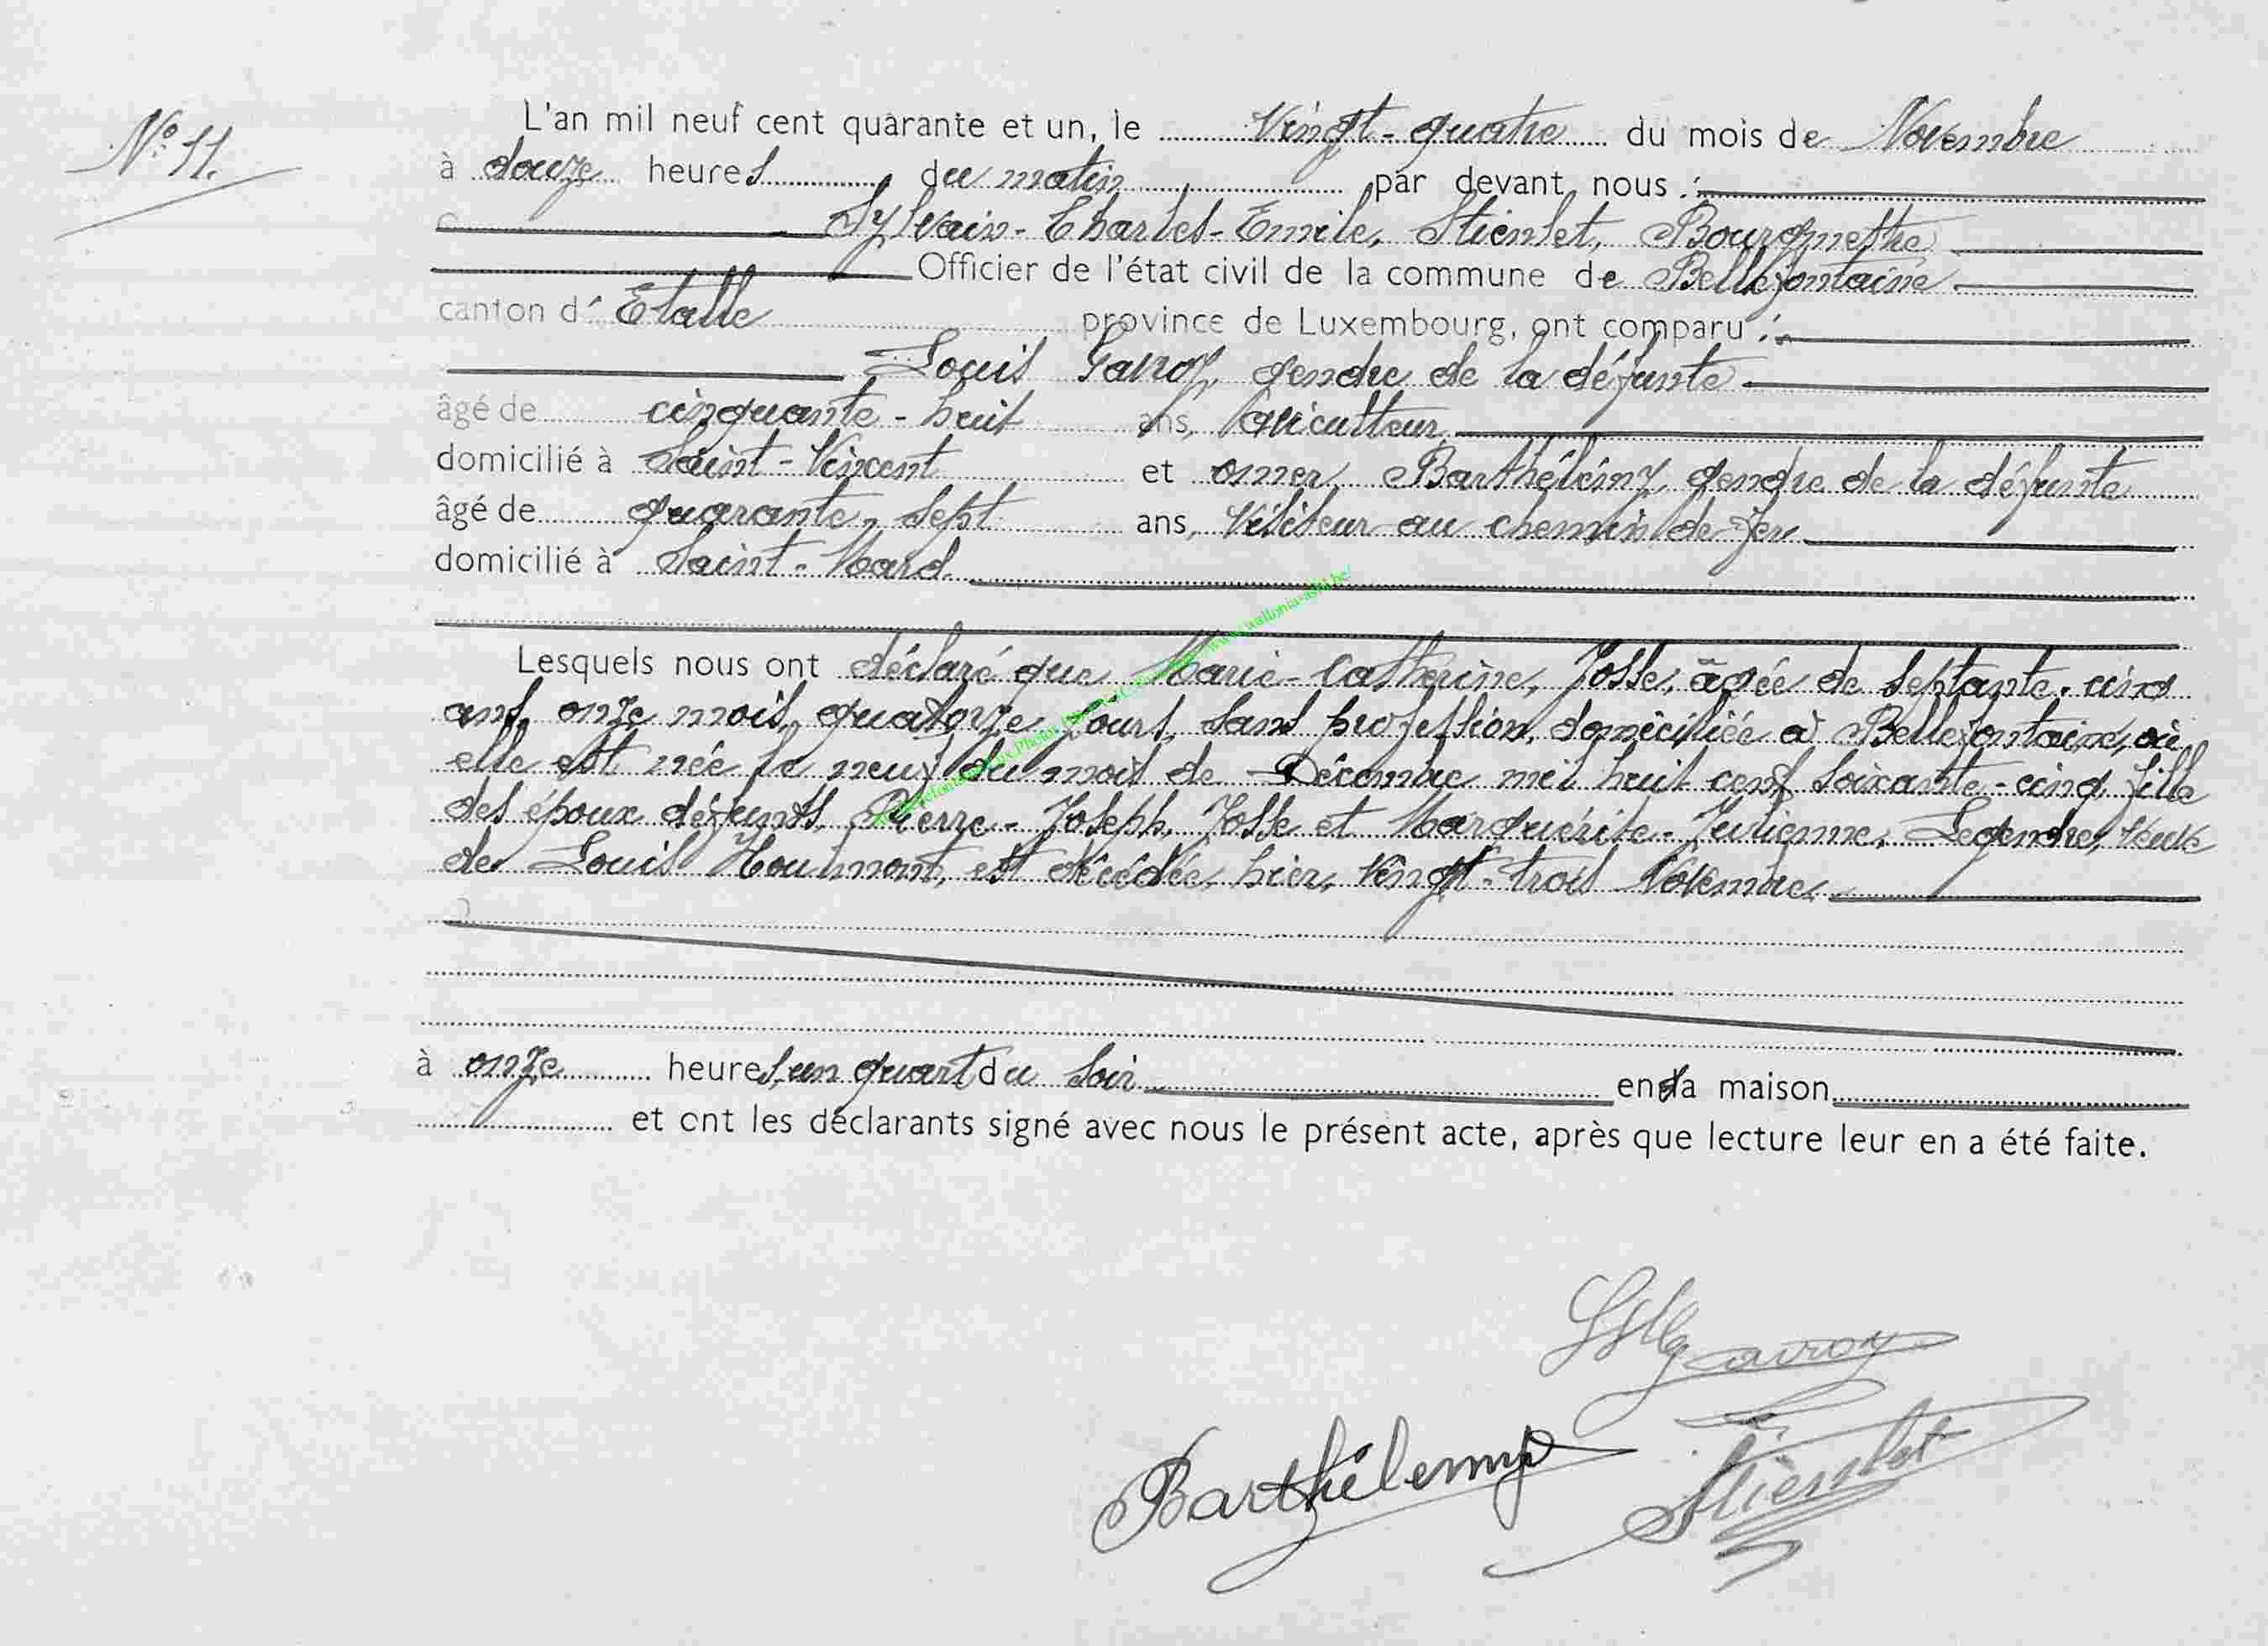 N° 11.
L'an mil neuf cent quarante et un, le Vingt-quatre du mois de Novembre
à douze heures du matin par devant nous :
Sylvain-Charles-Emile, Stienlet, Bourgmestre
Officier de l'état civil de la commune de Bellefontaine
canton d' Etalle province de Luxembourg, ont comparu :
Louis Gavroy, gendre de la défunte
âgé de cinquante-huit ans, Aviculteur
domicilié à Saint-Vincent et Omer, Barthélémy, gendre de la défunte
âgé de quarante-sept ans, Visiteur au chemin de fer
domicilié à Saint-Mard
Lesquels nous ont déclaré que Marie-Catherine, Josse, âgée de septante-cinq
ans, onze mois, quatorze jours, sans profession, domiciliée à Bellefontaine, où
elle est née le neuf du mois de Décembre mil huit cent soixante-cinq, fille
des époux défunts, Pierre-Joseph, Josse et Marguérite-Julienne, Legendre, veuve
de Louis Houlmont, est décédée, hier, vingt-trois Novembre
à onze heures, un quart du soir en sa maison
et ont les déclarants signé avec nous le présent acte, après que lecture leur en a été faite.
Gavroy
Barthélemy
Stienlet